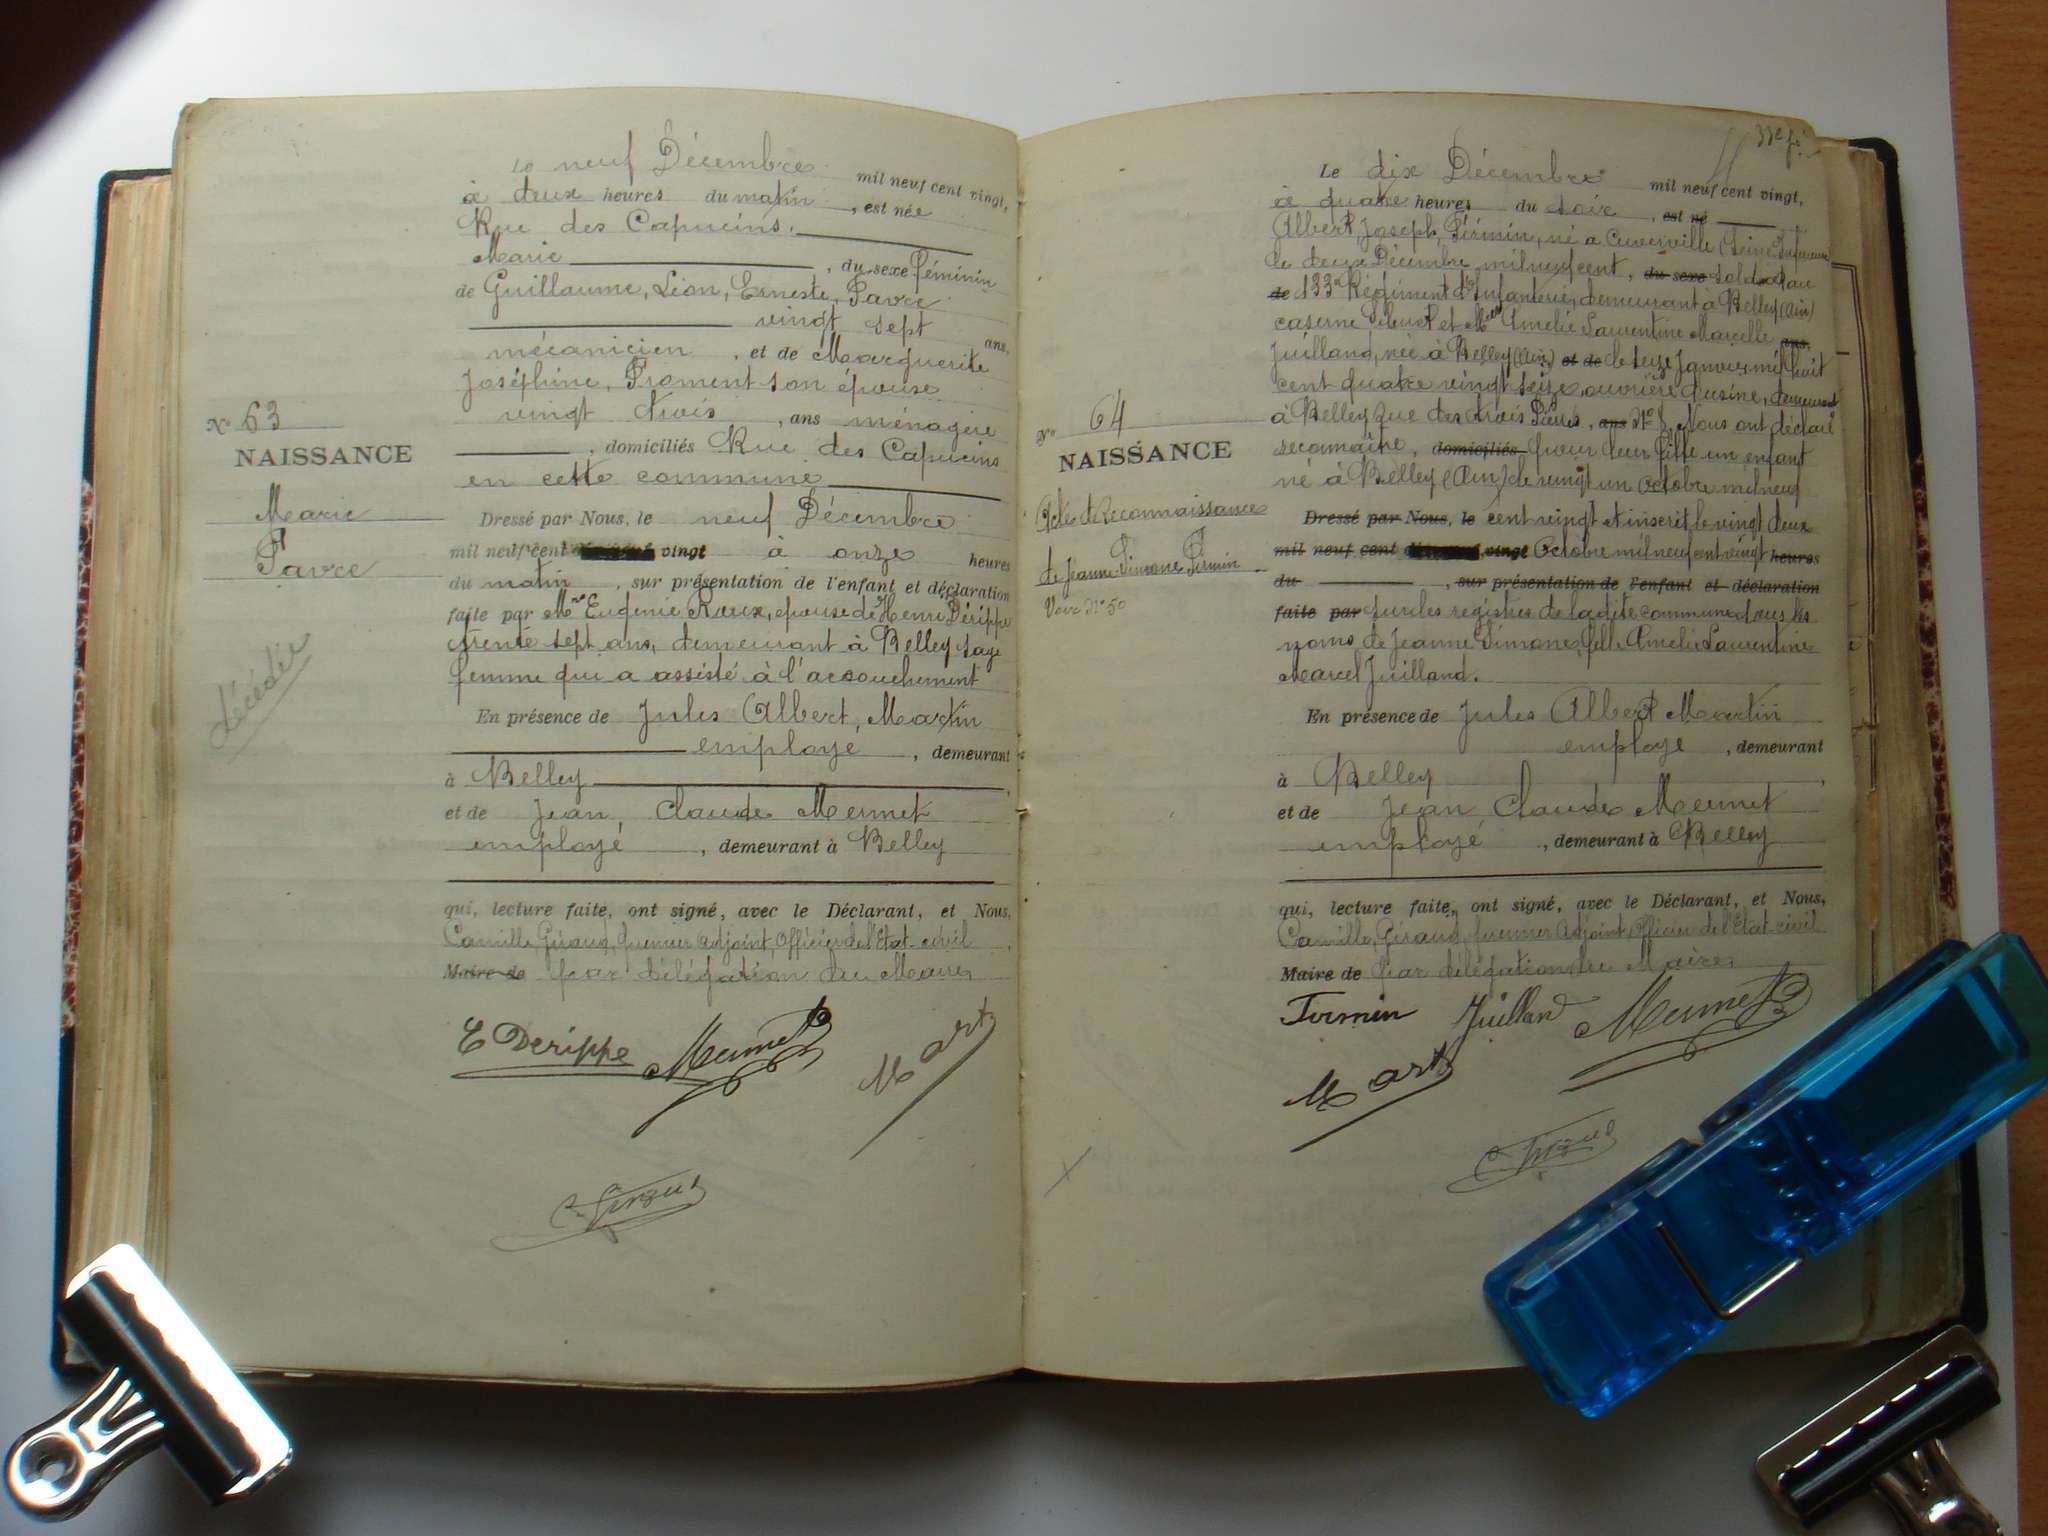 Le neuf Décembre mil neuf cent vingt,
à deux heures du matin, est née
Rue des Capucins.
Marie, du sexe féminin
de Guillaume, Léon, Erneste, Favre
vingt sept ans,
mécanicien, et de Marguerite
Joséphine, Froment son épouse
vingt trois, ans ménagère
, domiciliés Rue des Capucins
en cette commune
N° 63
NAISSANCE
Marie
Favre
décédée
Dressé par Nous, le neuf Décembre
mil neuf cent vingt à onze heures
du matin, sur présentation de l'enfant et déclaration
faite par Mme Eugénie Roux, épouse de Henri Dérippe
trente sept ans, demeurant à Belley sage
femme qui a assisté à l'accouchement
En présence de Jules Albert, Martin
employé, demeurant
à Belley,
et de Jean, Claude Mermet
employé, demeurant à Belley
qui, lecture faite, ont signé, avec le Déclarant, et Nous,
Camille, Giraud, premier adjoint, Officier de l'Etat-civil
Maire de par délégation du Maire
E Derippe Mermet Mart
C. Giraud
33e f.
Le dix Décembre mil neuf cent vingt,
à quatre heures du soir, est né
Albert, Joseph, Firmin, né à Cuverville (Seine Inférieure
le deux Décembre mil neuf cent, du sexe soldat au
de 133e Régiment d'Infanterie, demeurant à Belley (Ain)
caserne Sibuet et Melle Amélie Laurentine Marcelle ans,
Juilland, née à Belley (Ain) et de le seize Janvier mil huit
cent quatre vingt seize, ouvrière d'usine, demeurant
à Belley Rue des trois Pierres, ans N° 8, Nous ont déclaré
reconnaître, domiciliés pour leur fille un enfant
né à Belley (Ain) le vingt un Octobre mil neuf
N° 64
NAISSANCE
Acte de Reconnaissance
de Jeanne Simone Firmin
Voir N° 50
Dressé par Nous, le cent vingt et inscrit le vingt deux
mil neuf cent vingt Octobre mil neuf cent vingt heures
du, sur présentation de l'enfant et déclaration
faite par sur les registres de la dite commune sous les
noms de Jeanne Simone, fille Amélie Laurentine
Marcel Juilland.
En présence de Jules Albert Martin
employé, demeurant
à Belley,
et de Jean, Claude Mermet
employé, demeurant à Belley
qui, lecture faite, ont signé, avec le Déclarant, et Nous,
Camille, Giraud, premier Adjoint, Officier de l'Etat-civil
Maire de par délégation du Maire
Firmin Juilland Mermet
Mart
C. Giraud